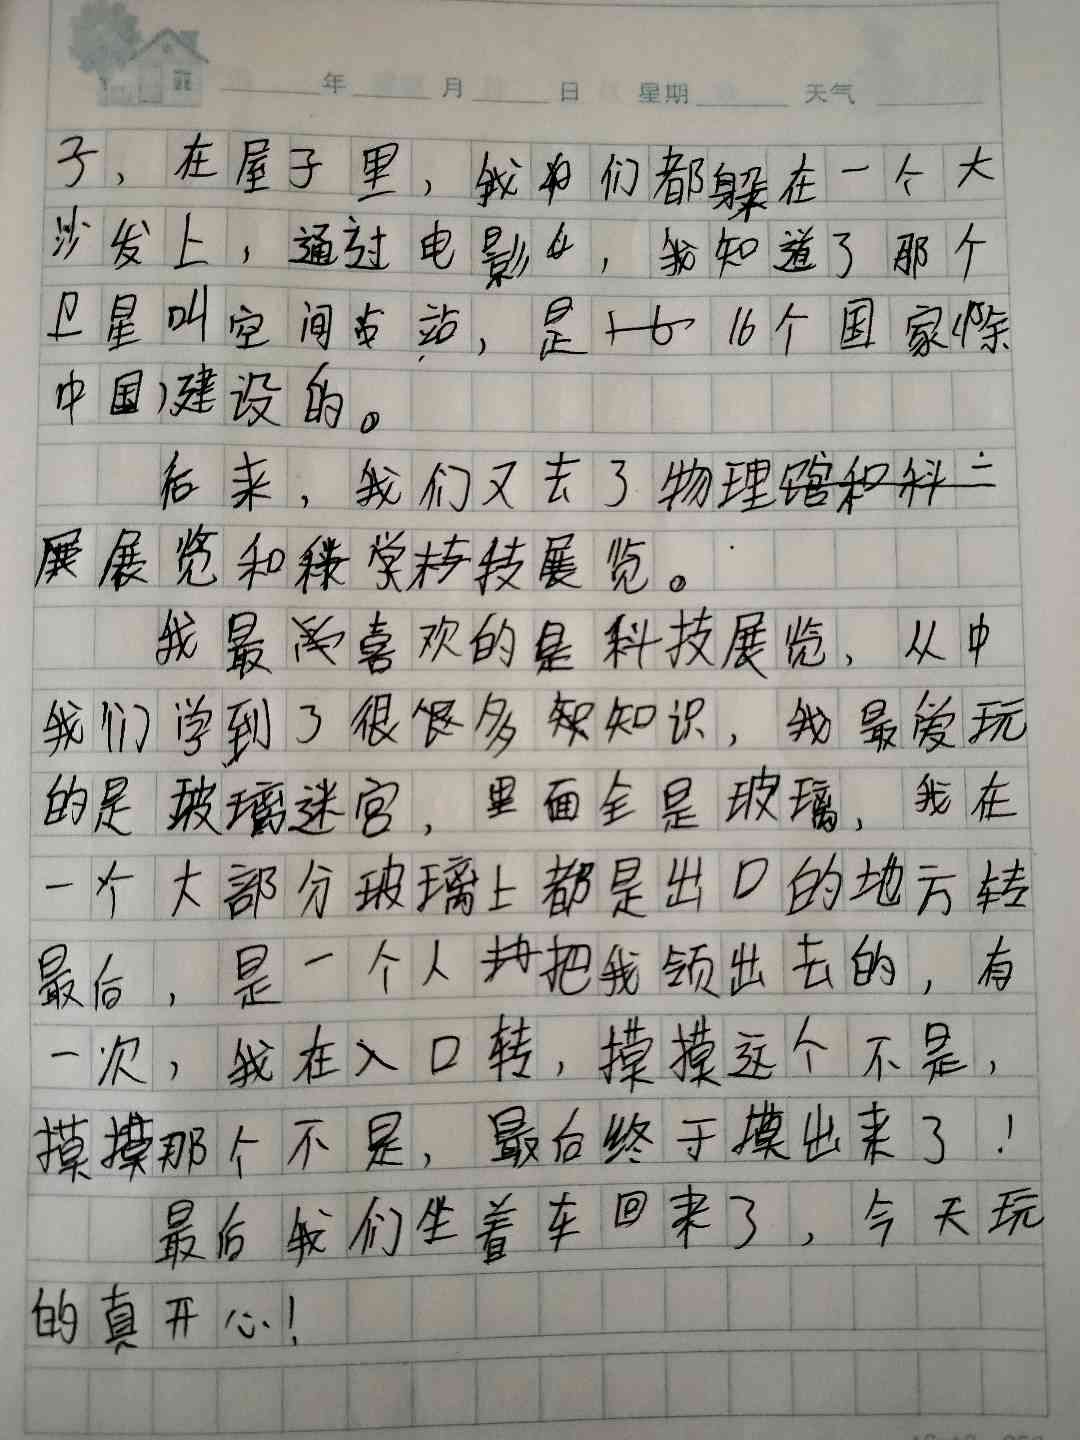 年 月 日 星期 天气
子，在屋子里，我们都躲在一个大
沙发上，通过电影，我知道了那个
卫星叫空间站，是16个国家（除
中国）建设的。
后来，我们又去了物理
展览和科学技展览。
我最喜欢的是科技展览，从中
我们学到了很多知识，我最爱玩
的是玻璃迷宫，里面全是玻璃，我在
一个大部分玻璃上都是出口的地方转
最后，是一个人把我领出去的，有
一次，我在入口转，摸摸这个不是，
摸摸那个不是，最后终于摸出来了！
最后我们坐着车回来了，今天玩
的真开心！